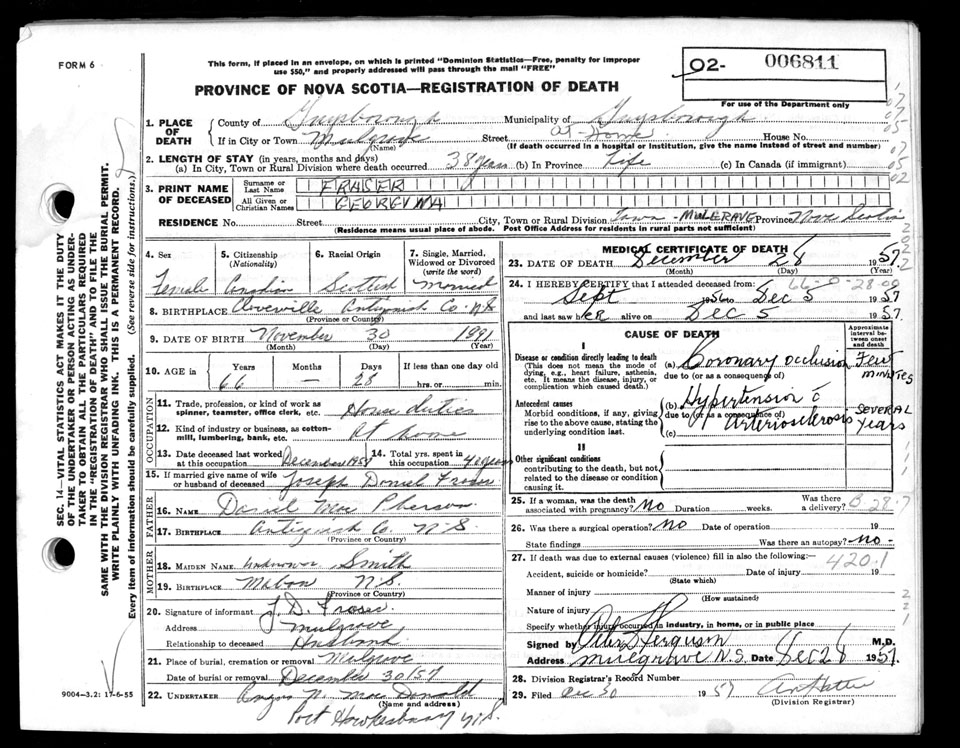 FORM 6
This form, if placed in an envelope, on which is printed "Dominion Statistics—Free, penalty for improper
use $50," and properly addressed will pass through the mail "FREE"
O2- 006811
For use of the Department only
PROVINCE OF NOVA SCOTIA—REGISTRATION OF DEATH
1. PLACE OF DEATH { County of Guysborough Municipality of Guysborough
If in City or Town Mulgrave (Name) Street At Home House No.
(If death occurred in a hospital or institution, give the name instead of street and number)
2. LENGTH OF STAY (in years, months and days)
(a) In City, Town or Rural Division where death occurred 38 years (b) In Province Life (c) In Canada (if immigrant)
3. PRINT NAME OF DECEASED { Surname or Last Name FRASER
All Given or Christian Names GEORGINA
RESIDENCE No. Street City, Town or Rural Division Town - MULGRAVE Province Nova Scotia
(Residence means usual place of abode. Post Office Address for residents in rural parts not sufficient)
4. Sex Female
5. Citizenship (Nationality) Canadian
6. Racial Origin Scottish
7. Single, Married, Widowed or Divorced (write the word) Married
8. BIRTHPLACE Cloverville Antigonish Co. N.S.
(Province or Country)
9. DATE OF BIRTH November 30 1891
(Month) (Day) (Year)
10. AGE in Years Months Days If less than one day old
66 — 28 hrs. or min.
OCCUPATION
11. Trade, profession, or kind of work as
spinner, teamster, office clerk, etc. House duties
12. Kind of industry or business, as cotton-
mill, lumbering, bank, etc. At home
13. Date deceased last worked at this occupation December 1957
14. Total yrs. spent in this occupation 40 years
15. If married give name of wife
or husband of deceased Joseph Daniel Fraser
FATHER
16. NAME Daniel Mac Pherson
17. BIRTHPLACE Antigonish Co. N.S.
(Province or Country)
MOTHER
18. MAIDEN NAME unknown Smith
19. BIRTHPLACE Mabou N.S.
(Province or Country)
20. Signature of informant J. D. Fraser
Address Mulgrave
Relationship to deceased Husband
21. Place of burial, cremation or removal Mulgrave
Date of burial or removal December 30/57
22. UNDERTAKER Angus N. Mac Donald
(Name and address)
Port Hawkesbury N.S.
9004-3.2: 17-6-55
MEDICAL CERTIFICATE OF DEATH
23. DATE OF DEATH December 28 1957
(Month) (Day) (Year)
24. I HEREBY CERTIFY that I attended deceased from: 66-0-28-00
Sept 1956 to Dec 5 1957
and last saw her alive on Dec 5 1957.
CAUSE OF DEATH
Approximate interval between onset and death
I
Disease or condition directly leading to death
(This does not mean the mode of dying, e.g., heart failure, asthenia, etc. It means the disease, injury, or complication which caused death.)
(a) Coronary occlusion Few minutes
due to (or as a consequence of)
Antecedent causes
Morbid conditions, if any, giving rise to the above cause, stating the underlying condition last.
(b) Hypertension c̄ Several years
due to (or as a consequence of)
Arteriosclerosis
(c)
II
Other significant conditions
contributing to the death, but not related to the disease or condition causing it.
25. If a woman, was the death
associated with pregnancy? No Duration weeks. Was there a delivery?
26. Was there a surgical operation? No Date of operation 19
State findings Was there an autopsy? No-
27. If death was due to external causes (violence) fill in also the following:— 420.1
Accident, suicide or homicide? Date of injury 19
(State which)
Manner of injury
(How sustained)
Nature of injury
Specify whether injury occurred in industry, in home, or in public place
Signed by Ferguson M.D.
Address Mulgrave N.S. Date Dec 28 1957.
28. Division Registrar's Record Number
29. Filed Dec 30 1957
(Division Registrar)
SEC. 14—VITAL STATISTICS ACT MAKES IT THE DUTY
OF THE UNDERTAKER OR PERSON ACTING AS UNDER-
TAKER TO OBTAIN ALL THE PARTICULARS REQUIRED
IN THE "REGISTRATION OF DEATH" AND TO FILE THE
SAME WITH THE DIVISION REGISTRAR WHO SHALL ISSUE THE BURIAL PERMIT.
WRITE PLAINLY WITH UNFADING INK. THIS IS A PERMANENT RECORD.
Every item of information should be carefully supplied. (See reverse side for instructions.)